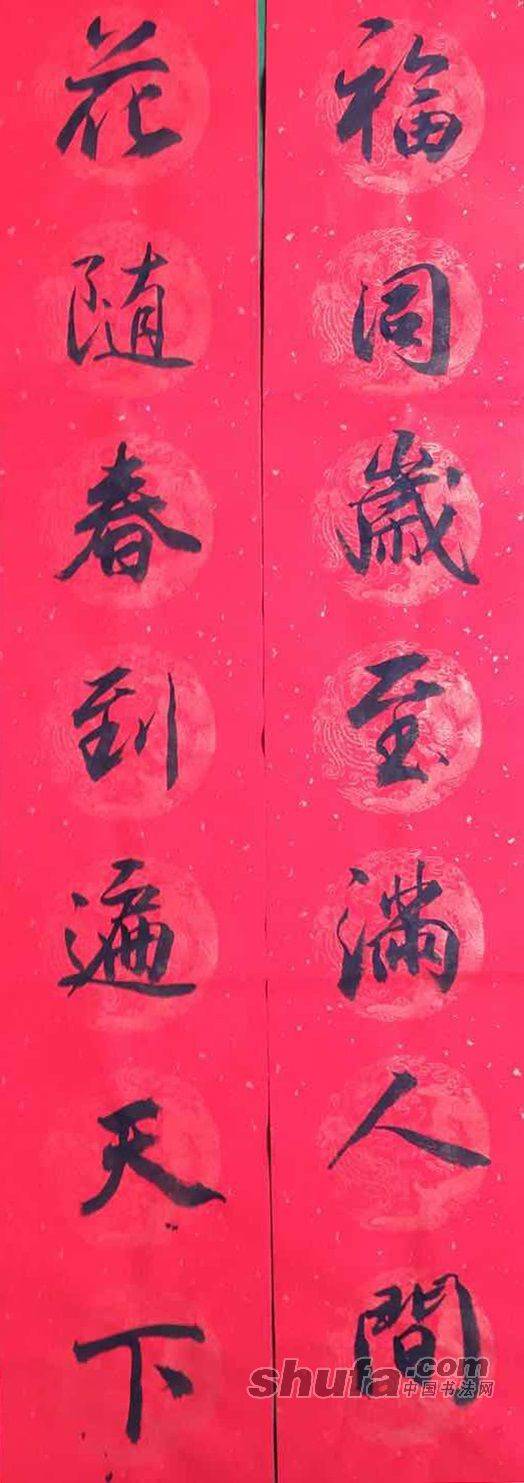 福同歲至滿人間
花隨春到遍天下
shufa.com
中国书法网